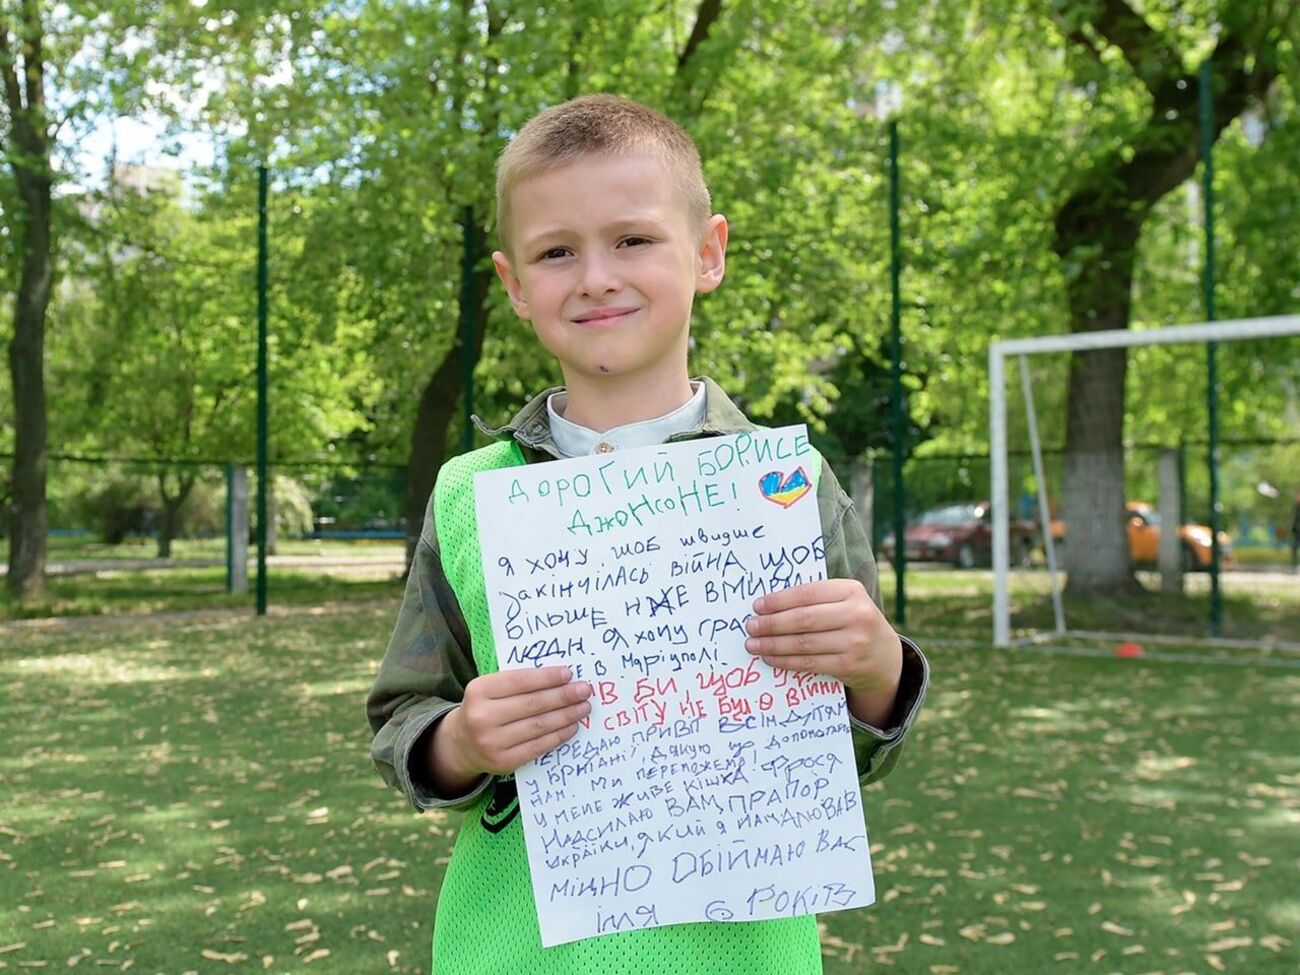 ДОРОГИЙ БОРИСЕ
ДЖОНСОНЕ!
Я ХОЧУ, ЩОБ ШВИДШЕ
ЗАКІНЧІЛАСЬ ВІЙНА, ЩОБ
БІЛЬШЕ НЖЕ ВМИРАЛИ
ЛЮДИ. Я ХОЧУ
В МАРІУПОЛІ.
БИ, ЩОБ
СВІТУ НЕ БУЛО ВІЙНИ
ПЕРЕДАЮ ПРИВІТ ВСІМ ДІТЯМ
У БРИТАНІЇ, ДЯКУЮ ЩО ДОПОМАГАЄТЕ
НАМ. МИ ПЕРЕМОЖЕМО!
У МЕНЕ ЖИВЕ КІШКА ФРОСЯ
НАДСИЛАЮ ВАМ ПРАПОР
УКРАЇНИ, ЯКИЙ Я НАМАЛЮВАВ
МІЦНО ОБІЙМАЮ ВАС
ІЛЛЯ 6 РОКІВ